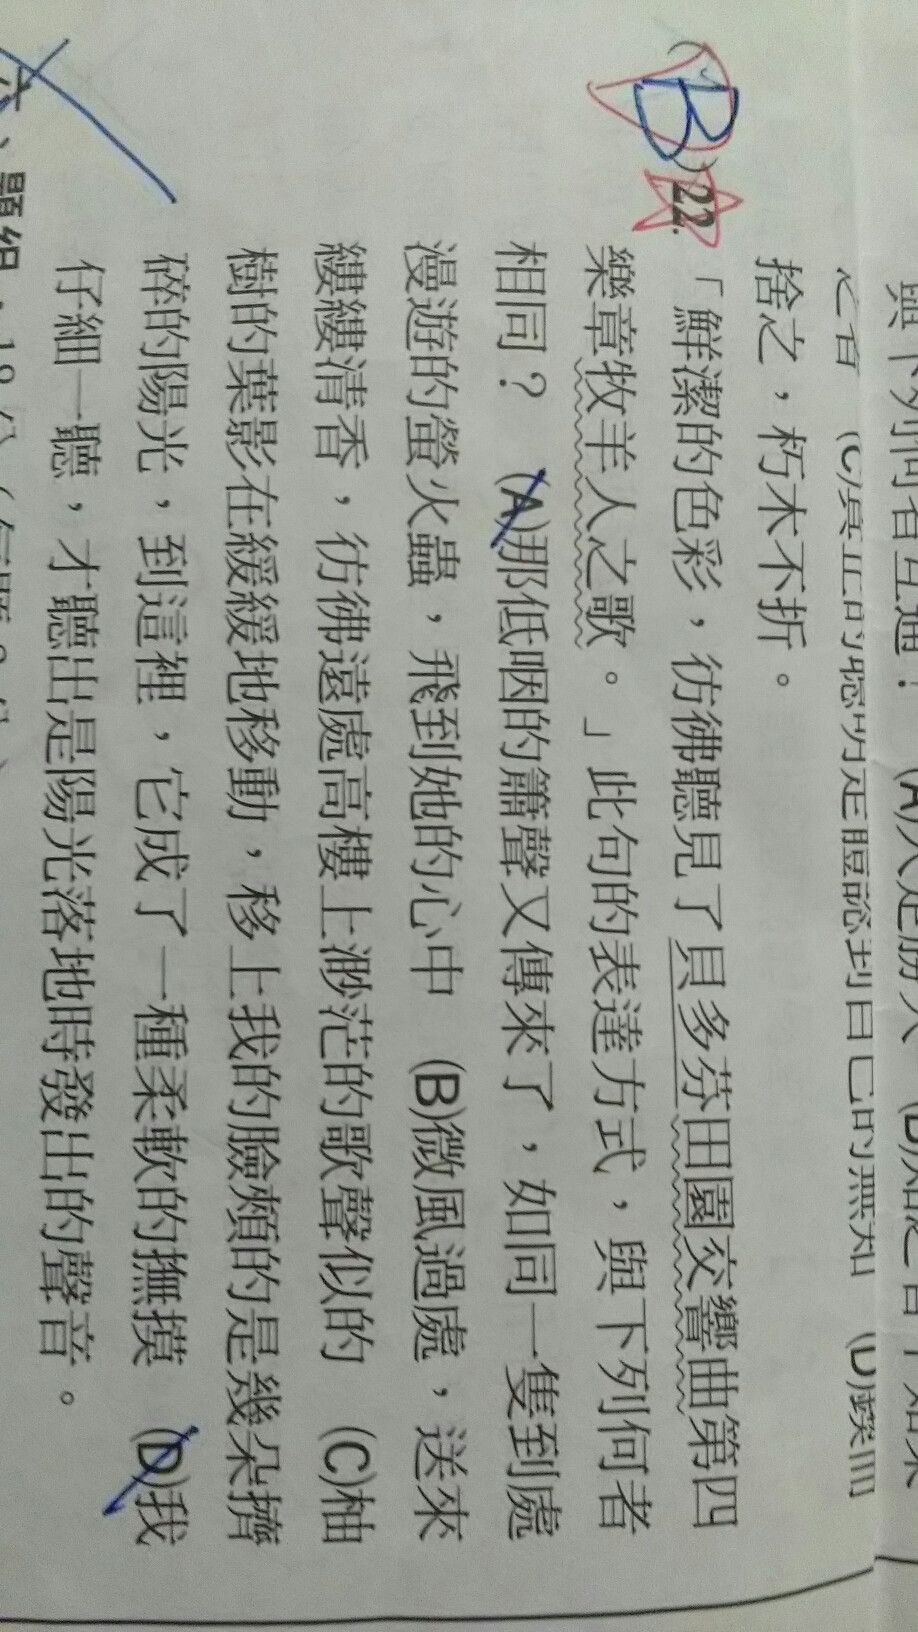 與下列何者互通？
之者 (C)真正的聰明是體認到自己的無知 (D)鍥而
捨之，朽木不折。
(B)22.「鮮潔的色彩，彷彿聽見了貝多芬田園交響曲第四
樂章牧羊人之歌。」此句的表達方式，與下列何者
相同？ (A)那低咽的簫聲又傳來了，如同一隻到處
漫遊的螢火蟲，飛到她的心中 (B)微風過處，送來
縷縷清香，彷彿遠處高樓上渺茫的歌聲似的 (C)柚
樹的葉影在緩緩地移動，移上我的臉頰的是幾朵擠
碎的陽光，到這裡，它成了一種柔軟的撫摸 (D)我
仔細一聽，才聽出是陽光落地時發出的聲音。
六、題組：18分（每題